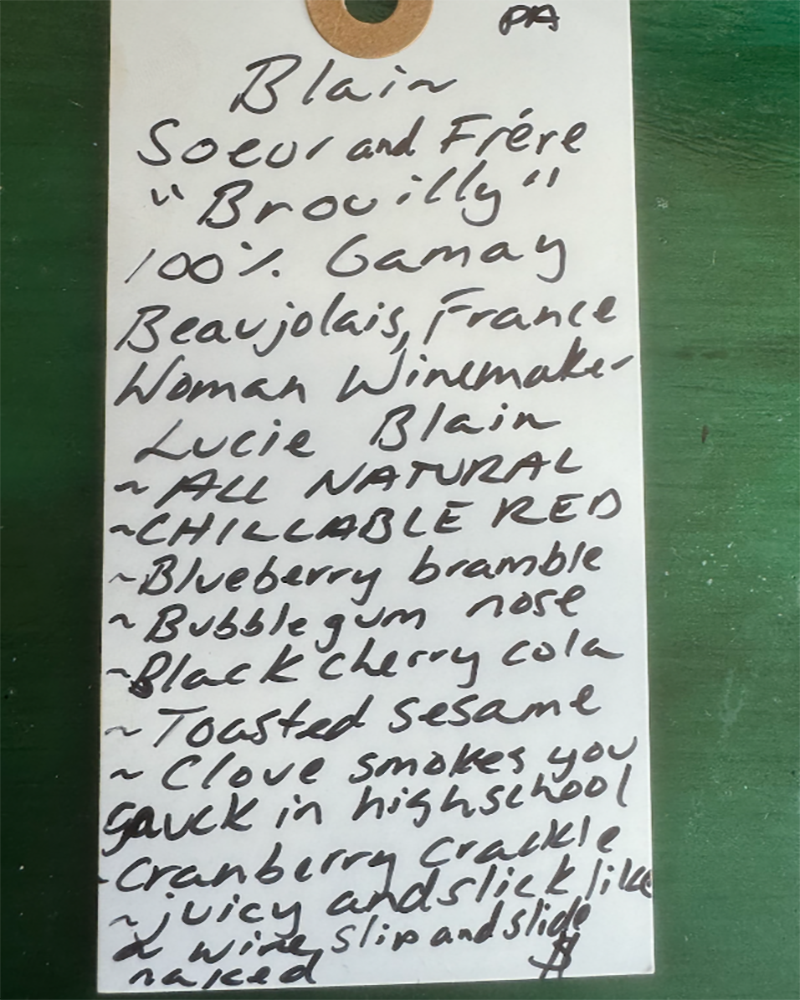 PA
Blain
Soeur and Frére
"Brouilly"
100% Gamay
Beaujolais, France
Woman Winemaker
Lucie Blain
~ ALL NATURAL
~CHILLABLE RED
~Blueberry bramble
~ Bubblegum nose
~Black cherry cola
~ Toasted sesame
~ Clove smokes you
in highschool
~Cranberry crackle
~juicy and slick like
a wine slip and slide
naked